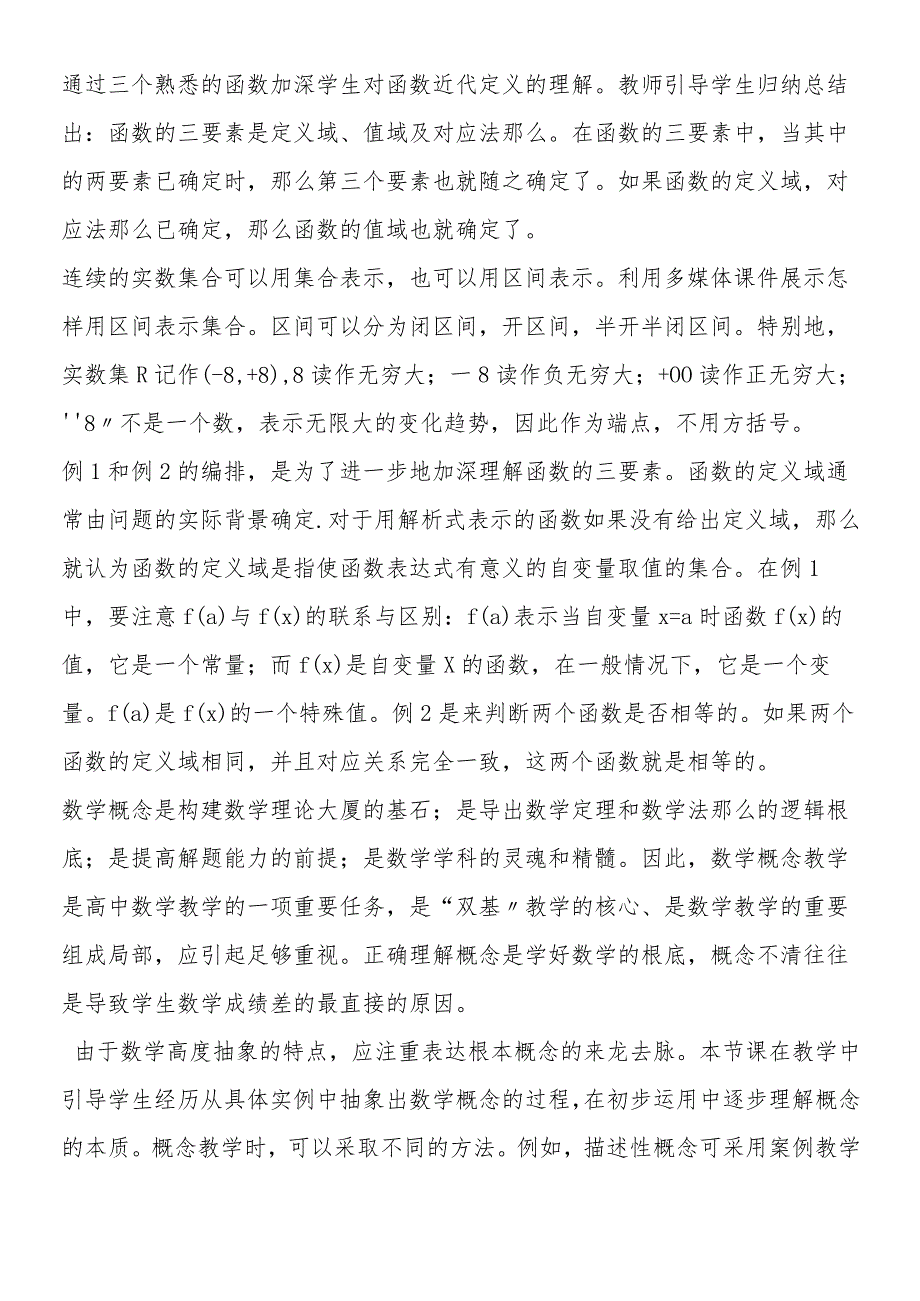 通过三个熟悉的函数加深学生对函数近代定义的理解。教师引导学生归纳总结
出：函数的三要素是定义域、值域及对应法那么。在函数的三要素中，当其中
的两要素已确定时，那么第三个要素也就随之确定了。如果函数的定义域，对
应法那么已确定，那么函数的值域也就确定了。
连续的实数集合可以用集合表示，也可以用区间表示。利用多媒体课件展示怎
样用区间表示集合。区间可以分为闭区间，开区间，半开半闭区间。特别地，
实数集R记作(-8,+8),8读作无穷大；一8读作负无穷大；+OO读作正无穷大；
''8〃不是一个数，表示无限大的变化趋势，因此作为端点，不用方括号。
例1和例2的编排，是为了进一步地加深理解函数的三要素。函数的定义域通
常由问题的实际背景确定.对于用解析式表示的函数如果没有给出定义域，那么
就认为函数的定义域是指使函数表达式有意义的自变量取值的集合。在例1
中，要注意f(a)与f(x)的联系与区别：f(a)表示当自变量x=a时函数f(x)的
值，它是一个常量；而f(x)是自变量X的函数，在一般情况下，它是一个变
量。f(a)是f(x)的一个特殊值。例2是来判断两个函数是否相等的。如果两个
函数的定义域相同，并且对应关系完全一致，这两个函数就是相等的。
数学概念是构建数学理论大厦的基石；是导出数学定理和数学法那么的逻辑根
底；是提高解题能力的前提；是数学学科的灵魂和精髓。因此，数学概念教学
是高中数学教学的一项重要任务，是“双基〃教学的核心、是数学教学的重要
组成局部，应引起足够重视。正确理解概念是学好数学的根底，概念不清往往
是导致学生数学成绩差的最直接的原因。
由于数学高度抽象的特点，应注重表达根本概念的来龙去脉。本节课在教学中
引导学生经历从具体实例中抽象出数学概念的过程,在初步运用中逐步理解概念
的本质。概念教学时，可以采取不同的方法。例如，描述性概念可采用案例教学